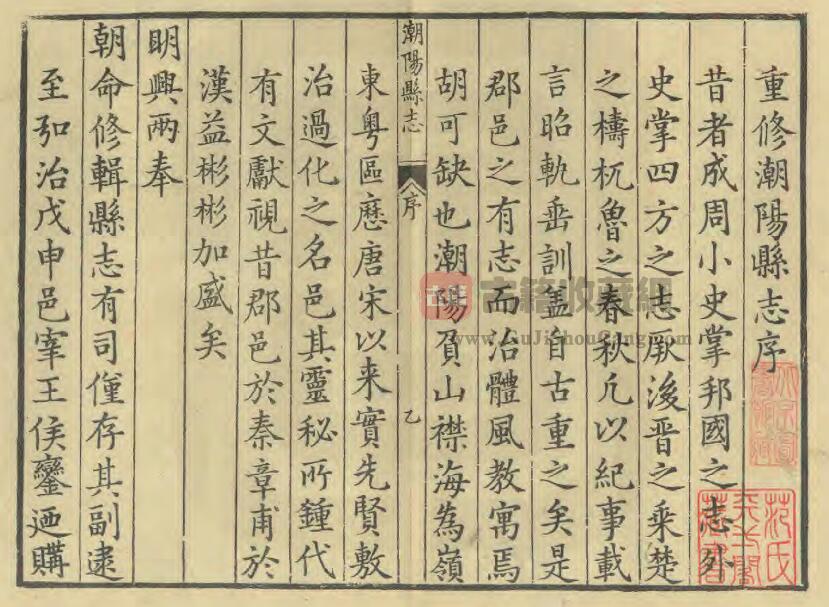 重修潮陽縣志序
昔者成周小史掌邦國之志外
史掌四方之志厥後晋之乘楚
之檮杌魯之春秋凢以紀事載
言昭軌垂訓盖自古重之矣是
郡邑之有志而治體風教寓焉
胡可缺也潮陽負山襟海為嶺
潮陽縣志
序
乙
東粤區歷唐宋以来實先賢敷
治過化之名邑其靈秘所鍾代
有文獻視昔郡邑於秦章甫於
漢益彬彬加盛矣
明興兩奉
朝命修輯縣志有司僅存其副逮
至弘治戊申邑宰王侯鑾迺購
古籍收藏網
www.GuJiShouCang.com
范氏
天一閣
藏書